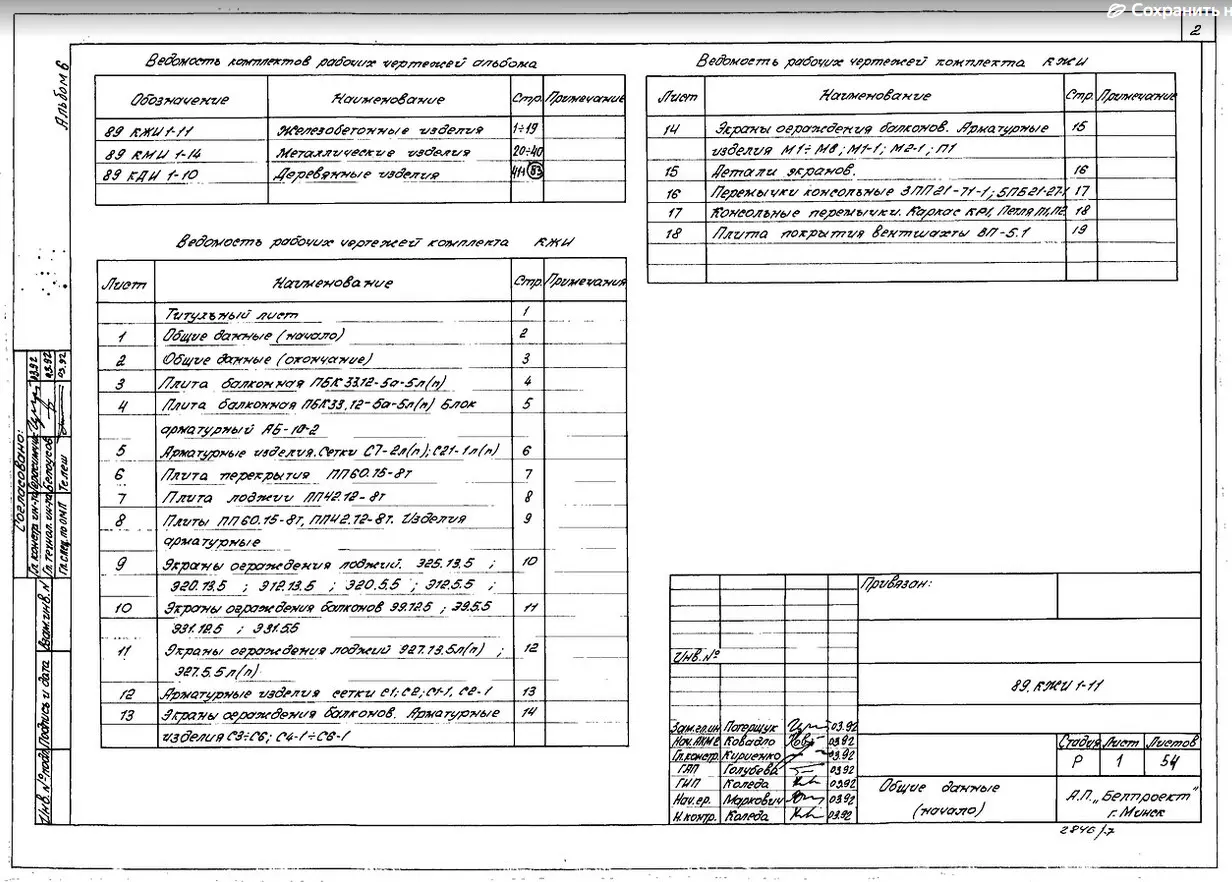 Сохранить
2
Альбом 6
Ведомость комплектов рабочих чертежей альбома
Обозначение Наименование Стр. Примечание
89 КЖИ 1-11 Железобетонные изделия 1÷19
89 КМИ 1-14 Металлические изделия 20÷40
89 КДИ 1-10 Деревянные изделия 53
Ведомость рабочих чертежей комплекта КЖИ
Лист Наименование Стр. Примечания
Титульный лист 1
1 Общие данные (начало) 2
2 Общие данные (окончание) 3
3 Плита балконная ПБК 33.12-5а-5л(п) 4
4 Плита балконная ПБК33.12-5а-5л(п) Блок 5
арматурный АБ-10-2
5 Арматурные изделия. Сетки С7-2л(п); С21-1л(п) 6
6 Плита перекрытия ПП60.15-8т 7
7 Плита лоджии ПП42.12-8т 8
8 Плиты ПП60.15-8т, ПП42.12-8т. Изделия 9
арматурные
9 Экраны ограждения лоджий. Э25.13.5 ; 10
Э20.13.5 ; Э12.13.5 ; Э20.5.5 ; Э12.5.5 ;
10 Экраны ограждения балконов Э9.12.5 ; Э9.5.5 11
Э31.12.5 ; Э31.5.5
11 Экраны ограждения лоджий Э27.13.5л(п) ; 12
Э27.5.5л(п)
12 Арматурные изделия сетки С1; С2; С1-1, С2-1 13
13 Экраны ограждения балконов. Арматурные 14
изделия С3÷С6; С4-1÷С6-1
Ведомость рабочих чертежей комплекта КЖИ
Лист Наименование Стр. Примечание
14 Экраны ограждения балконов. Арматурные 15
изделия М1÷М8; М1-1; М2-1; П1
15 Детали экранов. 16
16 Перемычки консольные 3ПП21-71-1; 5ПБ21-27-1 17
17 Консольные перемычки. Каркас КР1, Петля П1, П2 18
18 Плита покрытия вентшахты ВП-5.1 19
Согласовано:
Гл. констр. ин-та Герасимчик 03.92
Гл. технол. ин-та Белоусов 03.92
Гл. спец. по ОМП Телеш 03.92
Взам. инв. №
Подпись и дата
Инв. № подл.
Привязан:
Инв. №
89. КЖИ 1-11
Зам. гл. ин. Потерщук 03.92
Нач. АКМ2 Ковадло 03.92
Гл. констр. Кириенко 03.92
ГАП Голубева 03.92
ГИП Коледа 03.92
Нач. гр. Маркович 03.92
Н. контр. Коледа 03.92
Общие данные
(начало)
Стадия Лист Листов
Р 1 54
А.П. „Белпроект"
г. Минск
2846/7